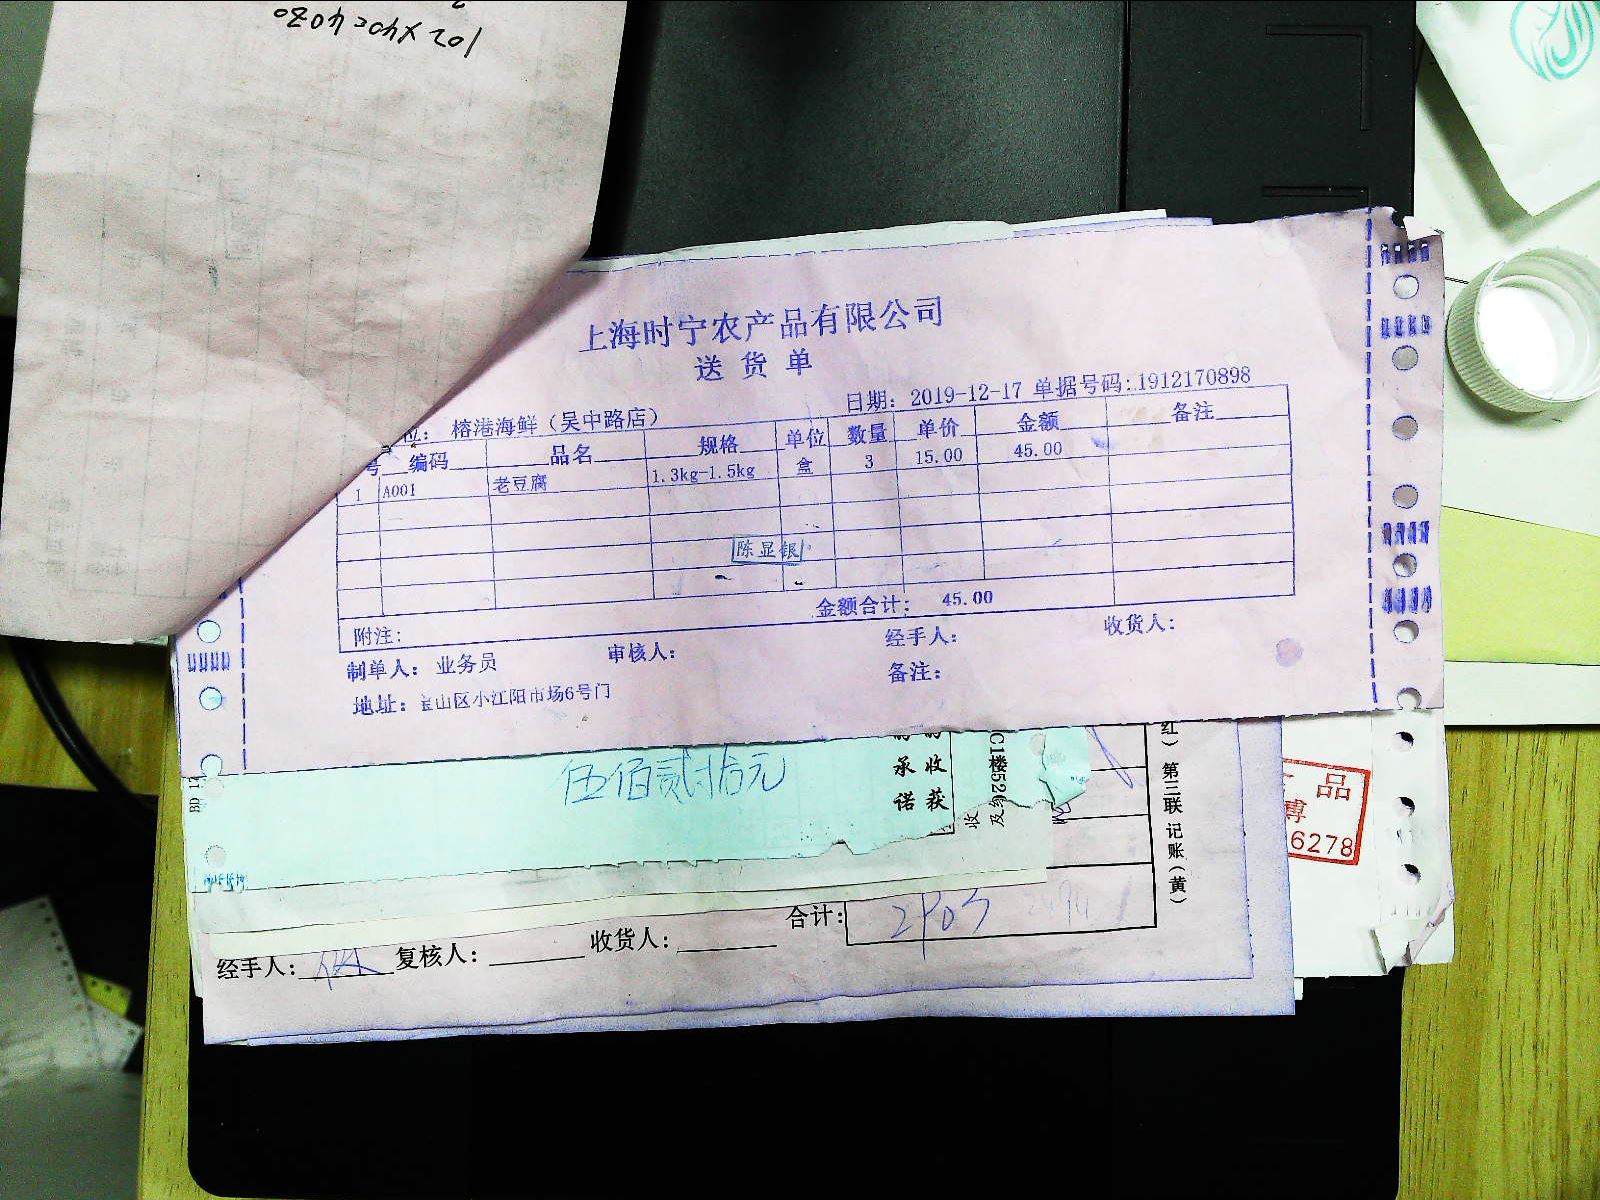 102×40=4080
上海时宁农产品有限公司
送货单
日期: 2019-12-17 单据号码: 1912170898
位: 榕港海鲜（吴中路店）
号 编码 品名 规格 单位 数量 单价 金额 备注
1 A001 老豆腐 1.3kg-1.5kg 盒 3 15.00 45.00
陈显银
金额合计: 45.00
附注:
制单人: 业务员 审核人: 经手人: 收货人:
备注:
地址: 宝山区小江阳市场6号门
伍佰贰拾元
承诺
收获
C1楼526
及
收
红）第三联 记账（黄）
品
博
6278
合计:
经手人: 复核人: 收货人: